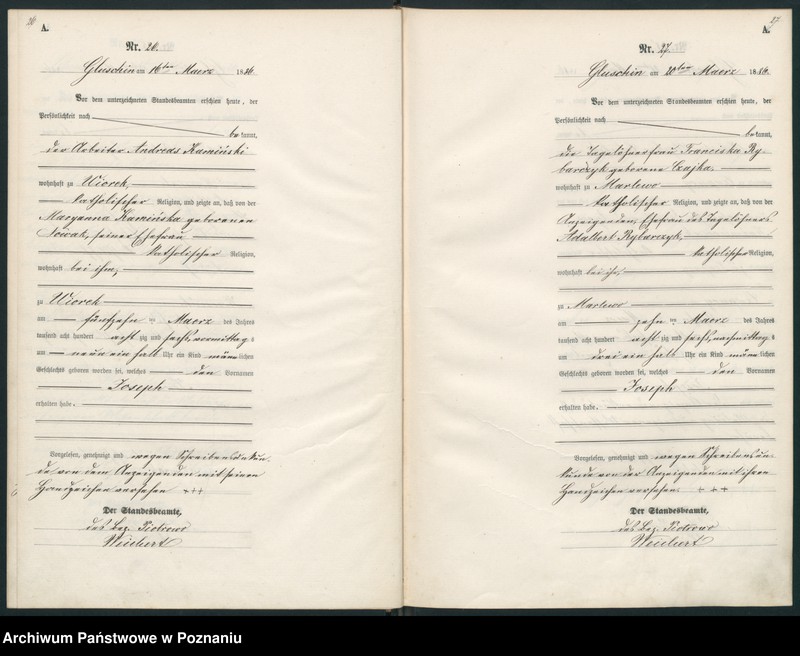 26
A.
Nr. 26.
Gluschin am 16ten Maerz 1886.
Vor dem unterzeichneten Standesbeamten erschien heute, der
Persönlichkeit nach
bekannt,
der Arbeiter Andreas Kamiński
wohnhaft zu Wiorek,
katholischer Religion, und zeigte an, daß von der
Maryanna Kamińska geborenen
Nowak, seiner Ehefrau
katholischer Religion,
wohnhaft bei ihm,
zu Wiorek
am fünfzehn ten Maerz des Jahres
tausend acht hundert acht zig und sechs, vormittags
um neun ein halb Uhr ein Kind männlichen
Geschlechts geboren worden sei, welches den Vornamen
Joseph
erhalten habe.
Vorgelesen, genehmigt und wegen Schreibensunkun-
de von dem Anzeigenden mit seinem
Handzeichen versehen +++
Der Standesbeamte,
des Bez. Piotrowo
Weichert
27
A.
Nr. 27.
Gluschin am 20ten Maerz 1886.
Vor dem unterzeichneten Standesbeamten erschien heute, der
Persönlichkeit nach
bekannt,
die Tagelöhnerfrau Franciska Ry-
barczyk geborene Czajka,
wohnhaft zu Marlewo
katholischer Religion, und zeigte an, daß von der
Anzeigenden, Ehefrau des Tagelöhners
Adalbert Rybarczyk,
katholischer Religion,
wohnhaft bei ihr,
zu Marlewo
am zehn ten Maerz des Jahres
tausend acht hundert acht zig und sechs, nachmittags
um drei ein halb Uhr ein Kind männlichen
Geschlechts geboren worden sei, welches den Vornamen
Joseph
erhalten habe.
Vorgelesen, genehmigt und wegen Schreibensun-
kunde von der Anzeigenden mit ihrem
Handzeichen versehen. + + +
Der Standesbeamte,
des Bez. Piotrowo
Weichert
Archiwum Państwowe w Poznaniu